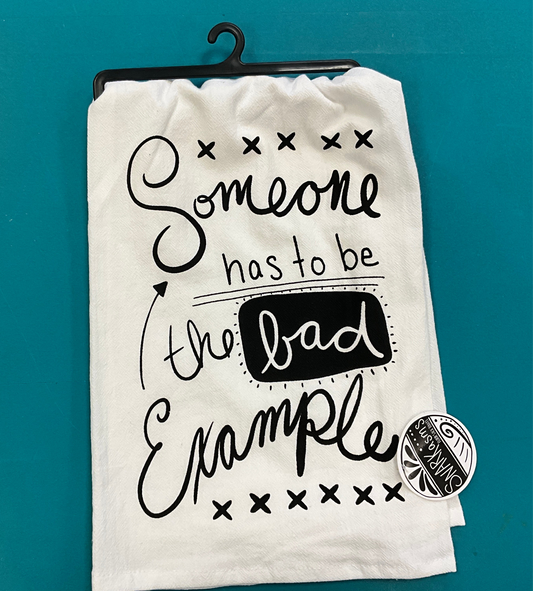 Someone
has to be
the bad
Example
SNARKasms